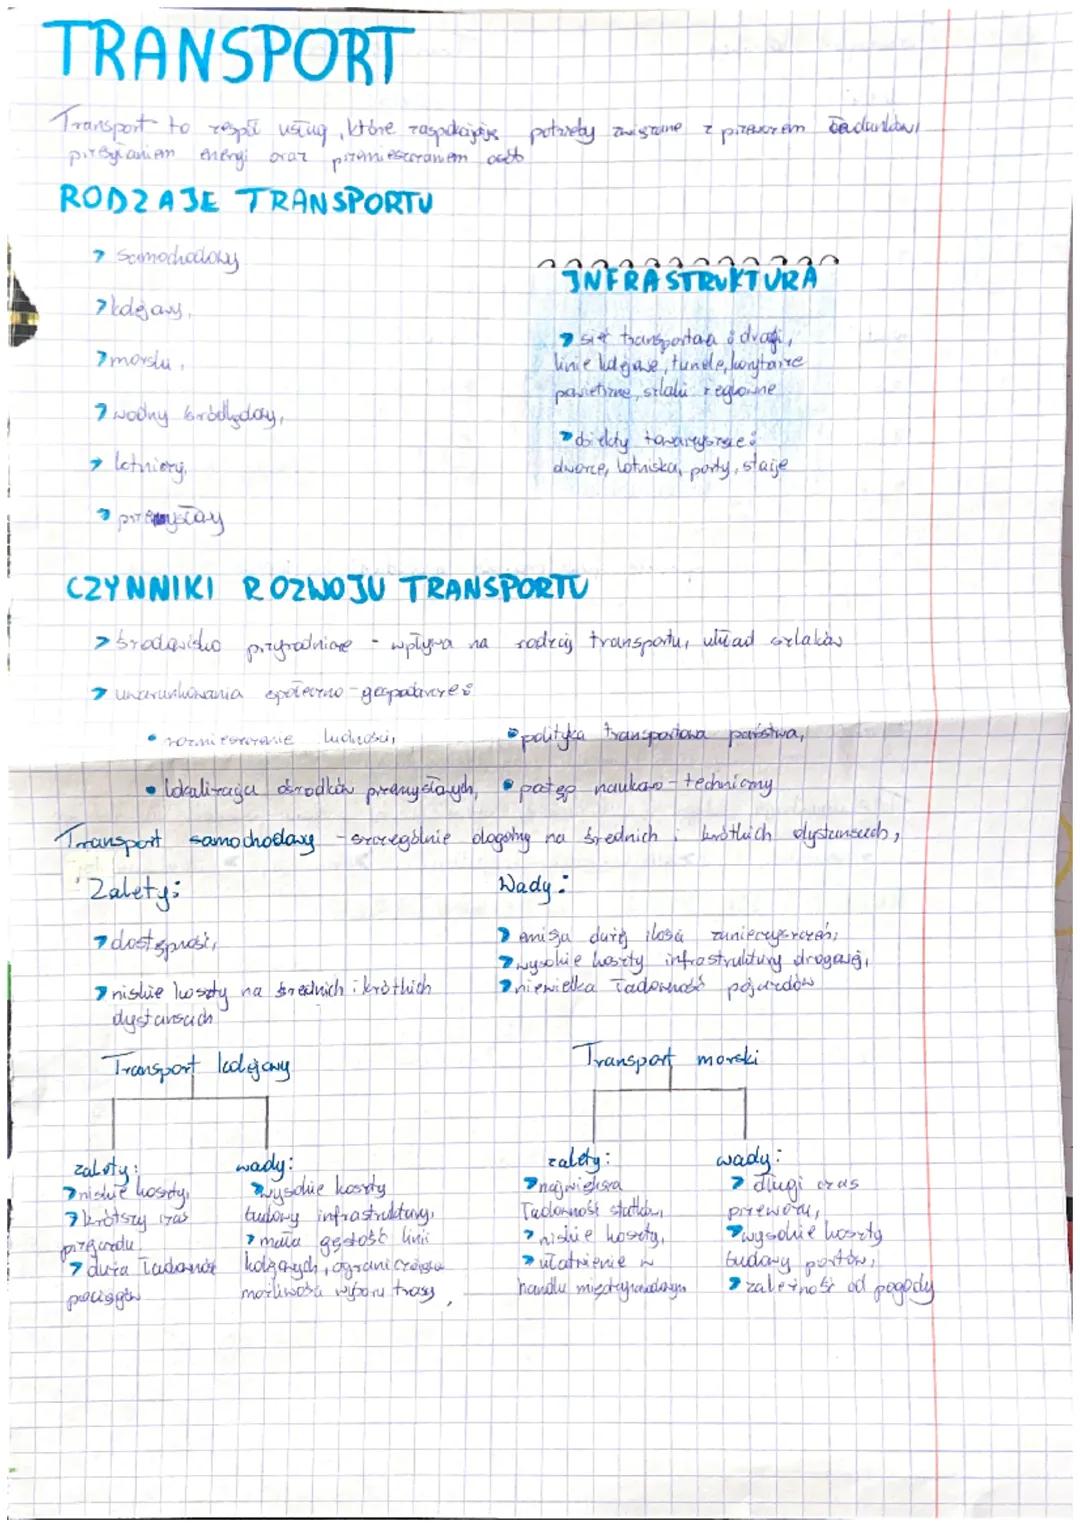 TRANSPORT
Transport to zespół usług, które zaspokajają potrzeby związane z przewozem ładunków,
przesyłaniem energi oraz przemieszczaniem osób
RODZAJE TRANSPORTU
→ samochodowy
→ kolejowy,
→ morski,
→ wodny śródlądowy,
→ lotniczy,
→ przemysłowy
INFRASTRUKTURA
→ sieć transportowa: drogi,
linie kolejowe, tunele, korytarze
powietrzne, szlaki żeglowne
→ obiekty towarzyszące:
dworce, lotniska, porty, stacje
CZYNNIKI ROZWOJU TRANSPORTU
→ środowisko przyrodnicze - wpływa na rodzaj transportu, układ szlaków
→ uwarunkowania społeczno-gospodarcze:
• rozmieszczenie ludności,
• polityka transportowa państwa,
• lokalizacja ośrodków przemysłowych,
• postęp naukowo-techniczny
Transport samochodowy - szczególnie dogodny na średnich i krótkich dystansach,
Zalety:
→ dostępność,
→ niskie koszty na średnich i krótkich
dystansach
Wady:
→ emisja dużej ilości zanieczyszczeń,
→ wysokie koszty infrastruktury drogowej,
→ niewielka ładowność pojazdów
Transport kolejowy
zalety:
→ niskie koszty,
→ krótszy czas
przejazdu
→ duża ładowność
pociągów
wady:
→ wysokie koszty
budowy infrastruktury,
→ mała gęstość linii
kolejowych, ograniczająca
możliwość wyboru trasy,
Transport morski
zalety:
→ największa
ładowność statków,
→ niskie koszty,
→ ułatwienie w
handlu międzynarodowym
wady:
→ długi czas
przewozu,
→ wysokie koszty
budowy portów,
→ zależność od pogody